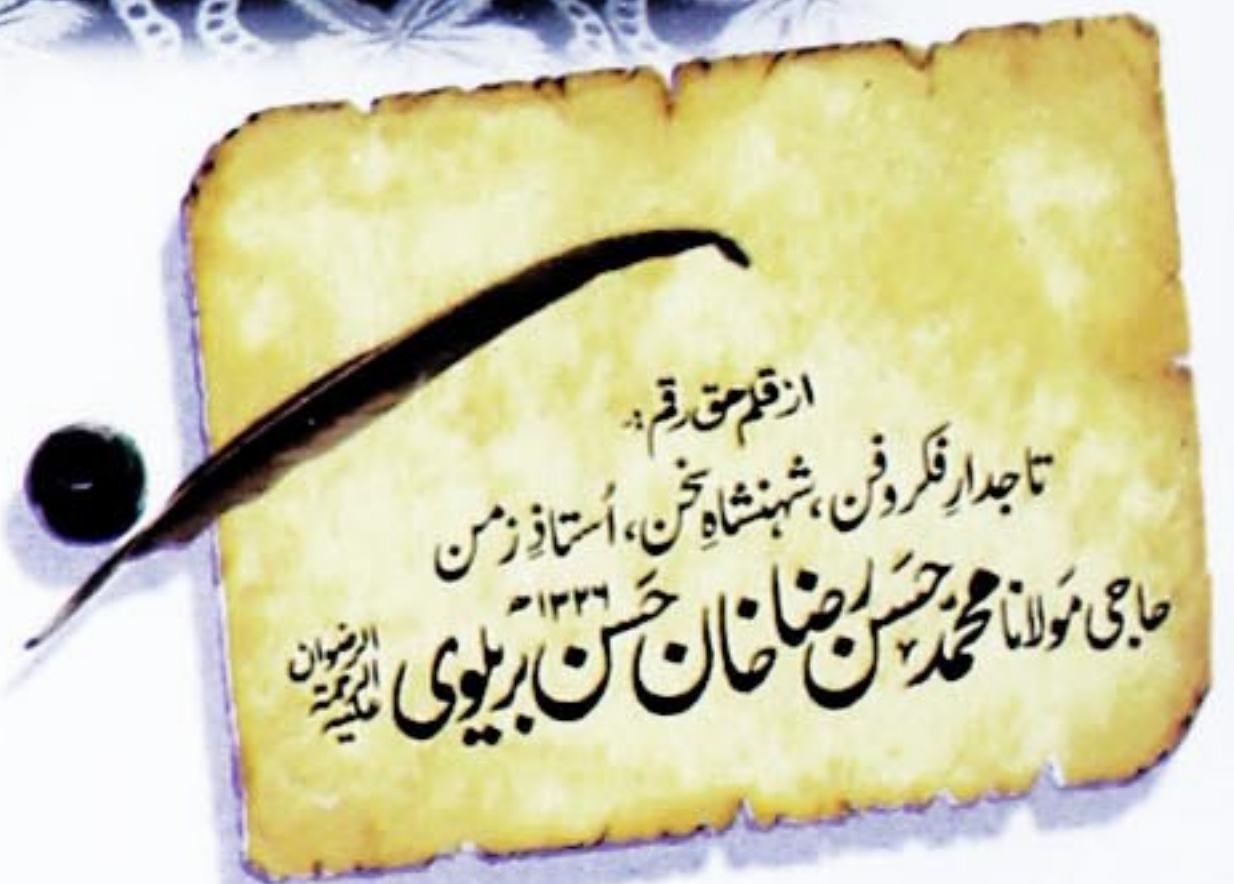 از قلم حق رقم:
تاجدارِ فکر و فن، شہنشاہِ سخن، اُستاذِ زمن
حاجی مَولانا محمّد حسَن رضا خان حَسن بریلوی علیہ الرحمۃ الرضوان
۱۳۲۶ھ